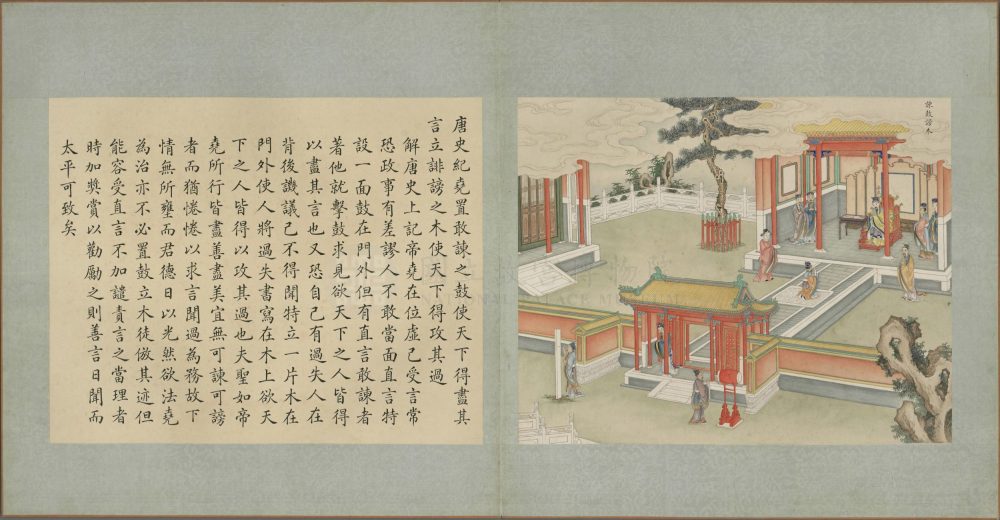 諫鼓謗木
唐史紀堯置敢諫之鼓使天下得盡其
言立誹謗之木使天下得攻其過
解唐史上記帝堯在位虛己受言常
恐政事有差謬人不敢當面直言特
設一面鼓在門外但有直言敢諫者
著他就擊鼓求見欲天下之人皆得
以盡其言也又恐自己有過失人在
背後譏議己不得聞特立一片木在
門外使人將過失書寫在木上欲天
下之人皆得以攻其過也夫聖如帝
堯所行皆盡善盡美宜無可諫可謗
者而猶惓惓以求言聞過為務故下
情無所壅而君德日以光然欲法堯
為治亦不必置鼓立木徒倣其迹但
能容受直言不加譴責言之當理者
時加獎賞以勸勵之則善言日聞而
太平可致矣
NATIONAL PALACE MUSEUM